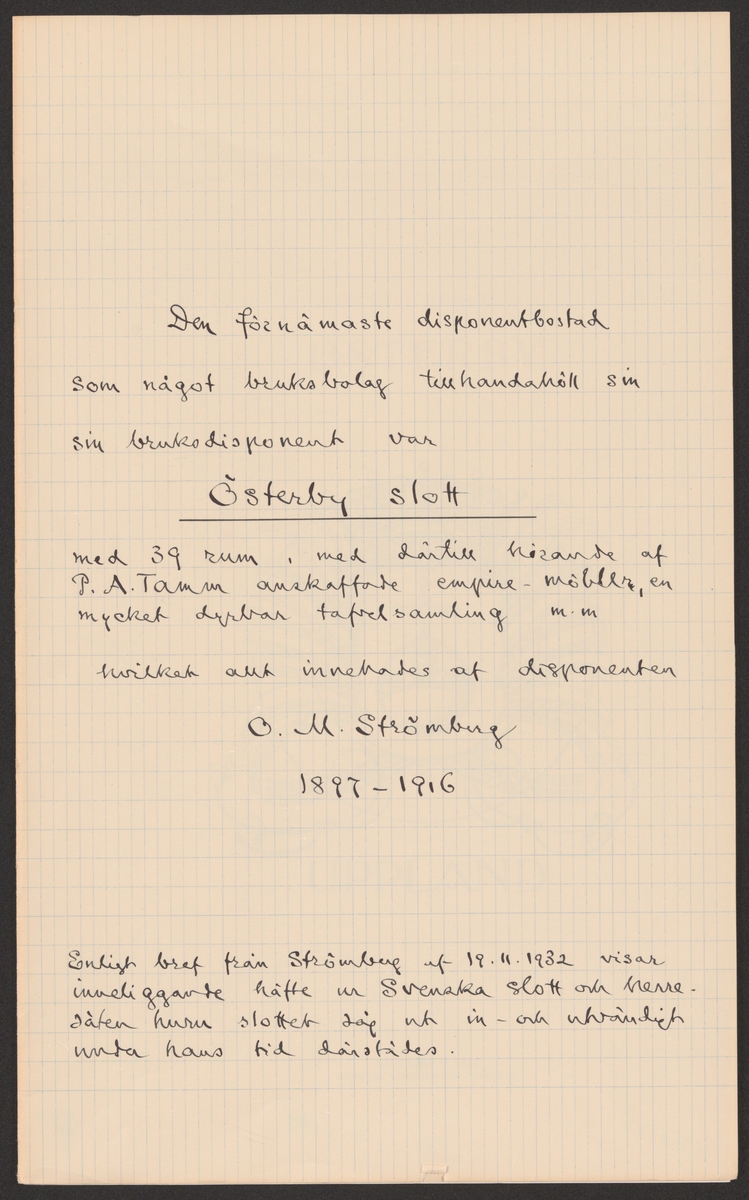 Den förnämaste disponentbostad
som något bruksbolag tillhandahöll sin
sin bruksdisponent var
Österby slott
med 39 rum, med därtill hörande af
P. A. Tamm anskaffade empire-möbler, en
mycket dyrbar tafvelsamling m.m
hvilket allt innehades af disponenten
O. M. Strömberg
1897 - 1916
Enligt bref från Strömberg af 19.11.1932 visar
inneliggande häfte ur Svenska slott och herre-
säten huru slottet såg ut in- och utvändigt
under hans tid därstädes.